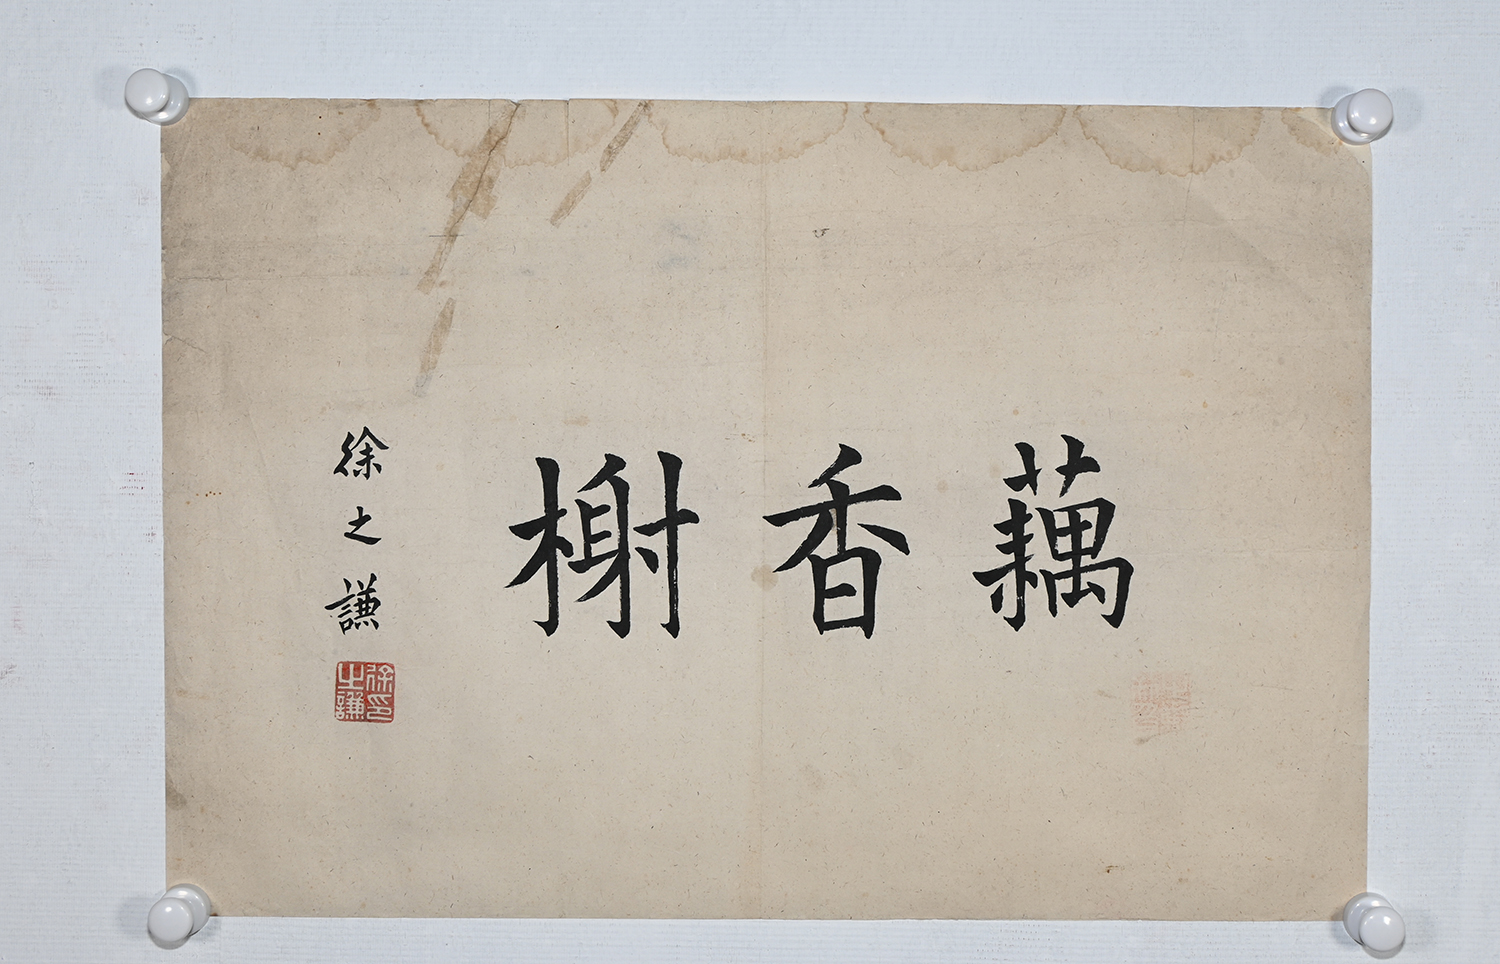 藕香榭
徐之謙
徐印
之謙